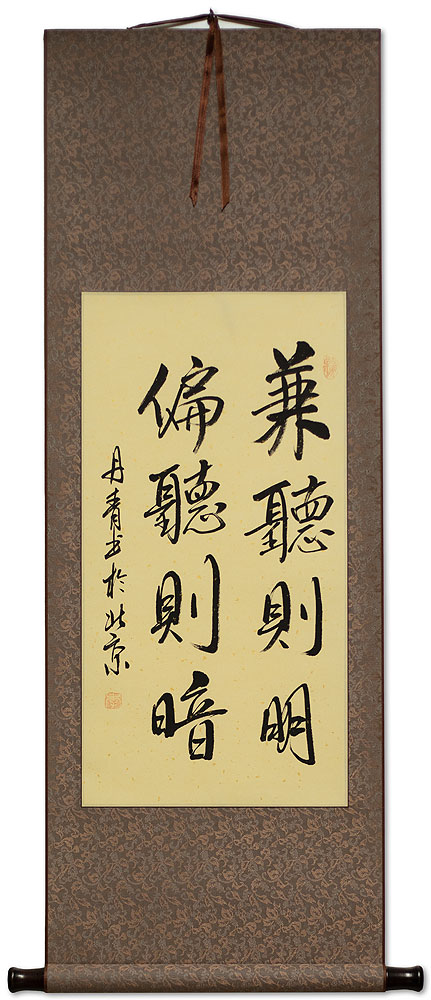 兼聽則明
偏聽則暗
丹青书於北京